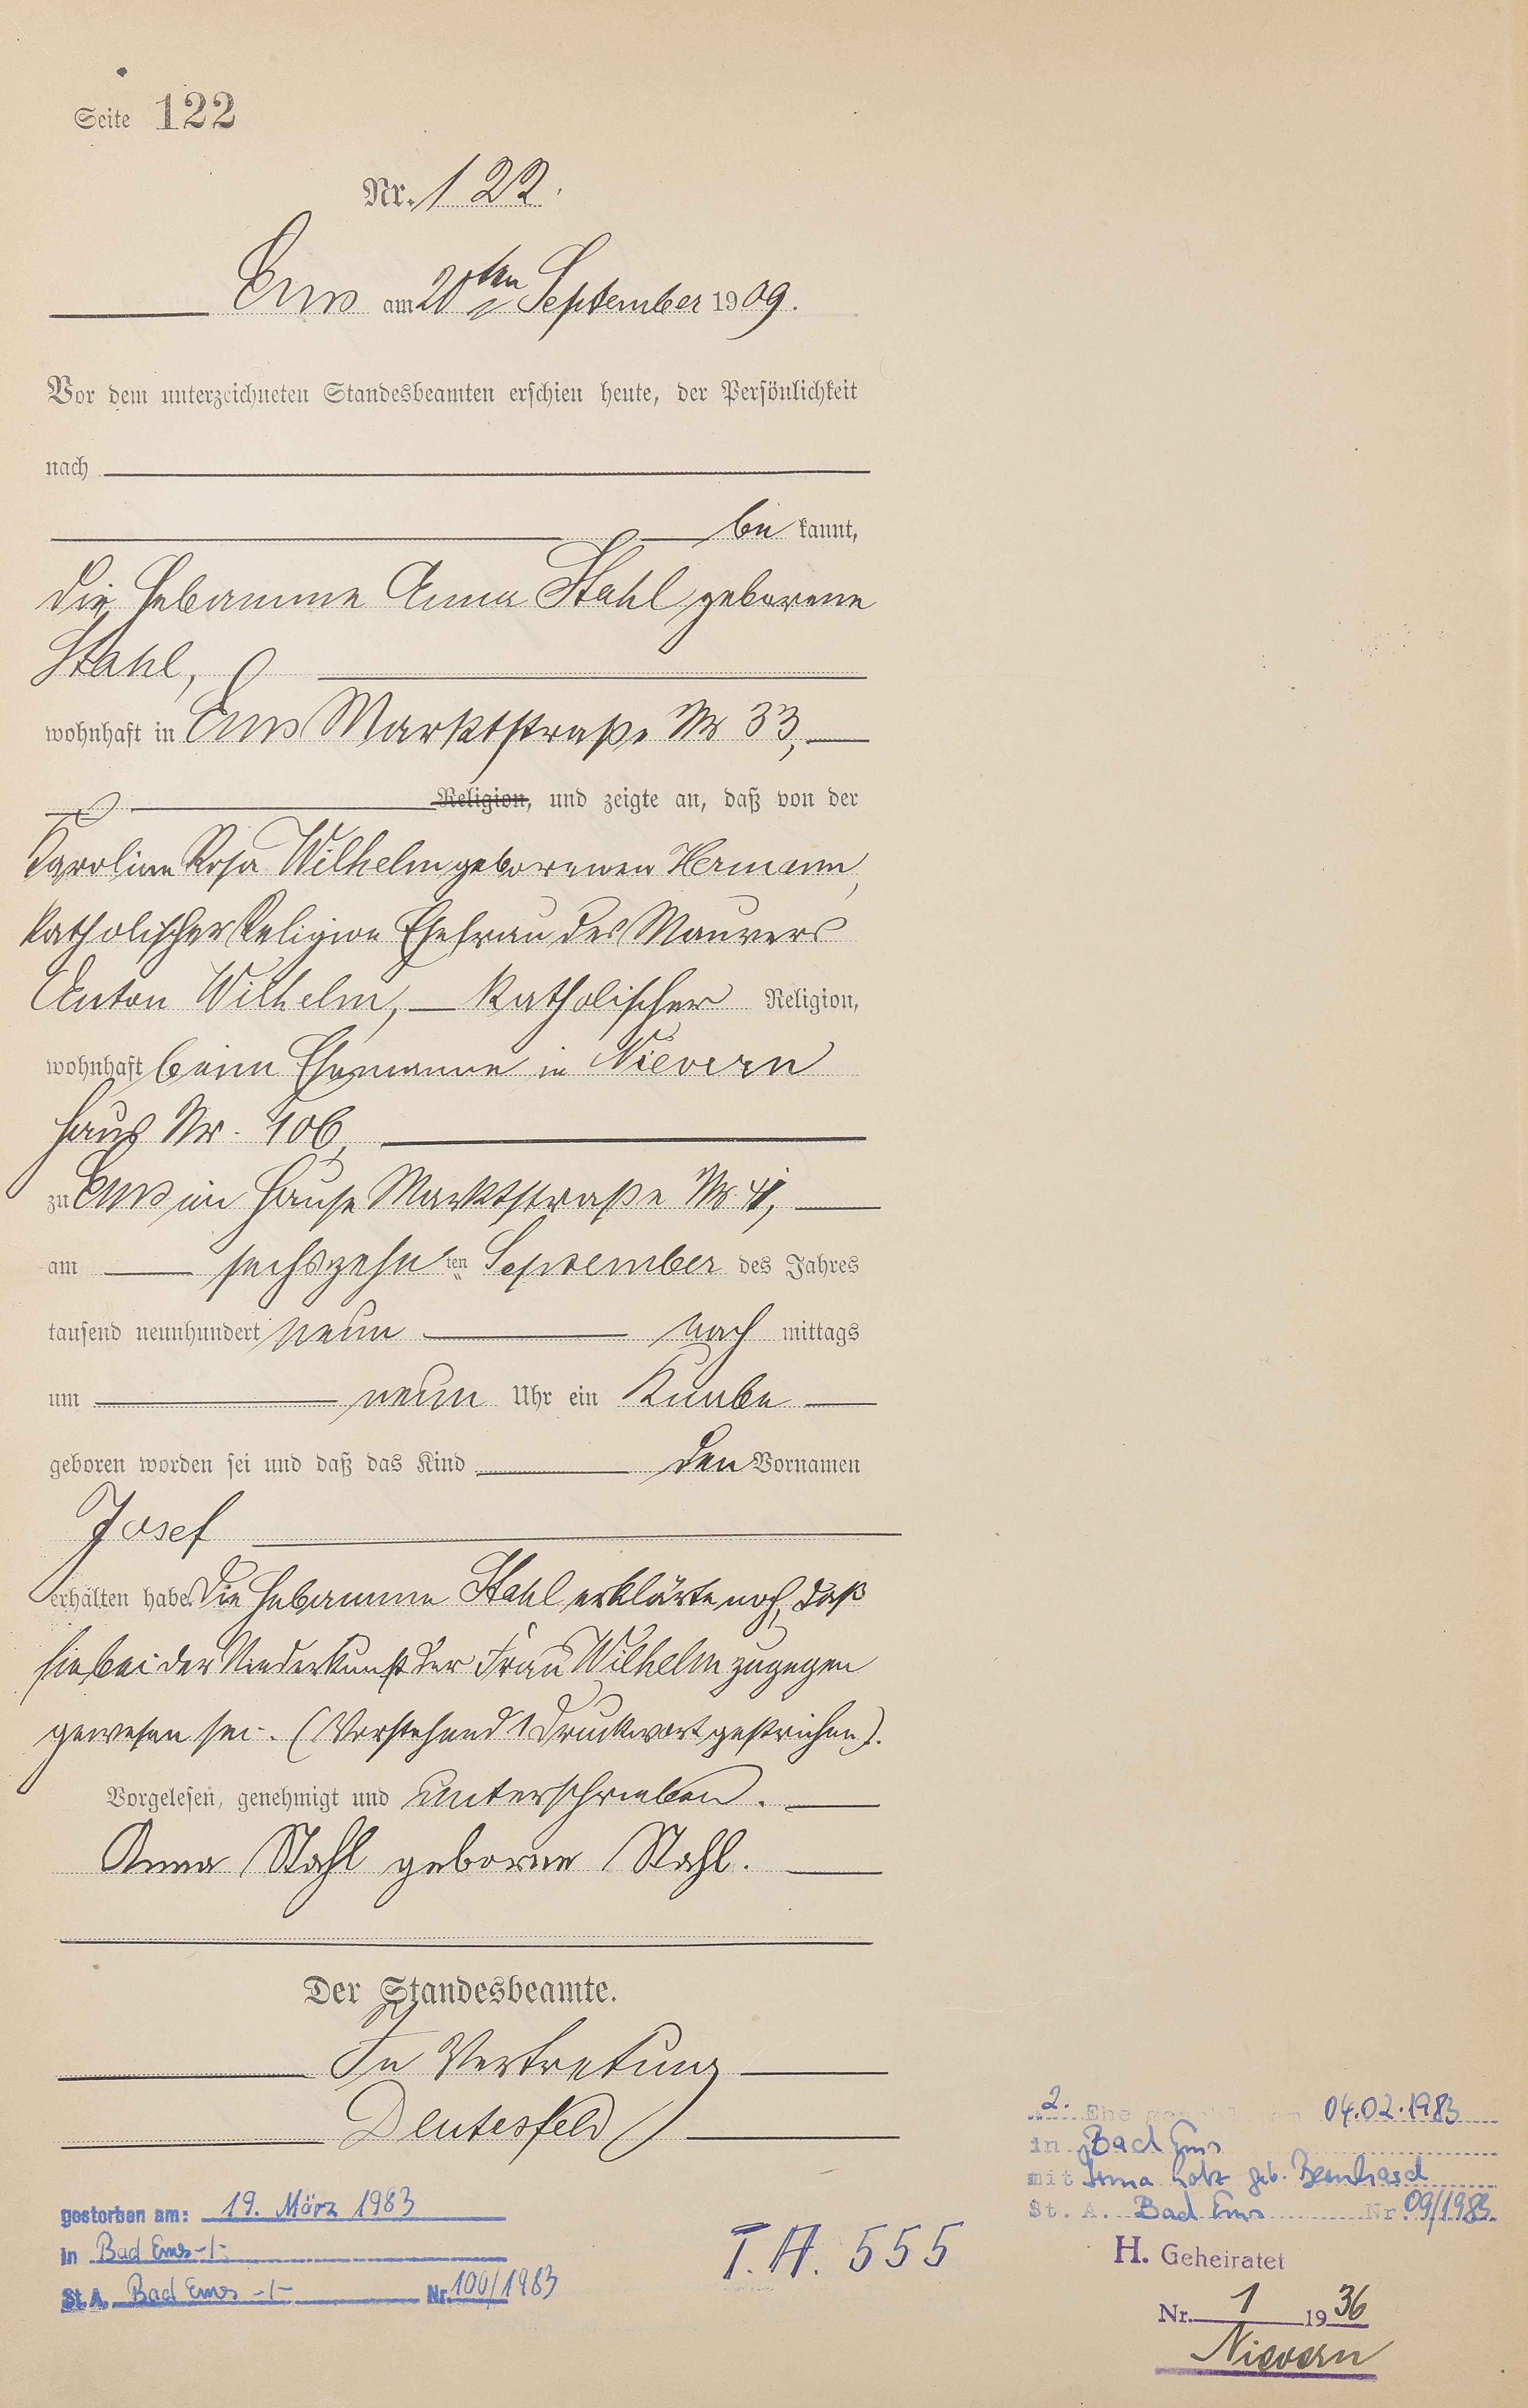 Seite 122
Nr. 122.
Ems am 20ten September 1909.
Vor dem unterzeichneten Standesbeamten erschien heute, der Persönlichkeit
nach
be kannt,
die Hebamme Anna Stahl geborene
Stahl,
wohnhaft in Ems Marktstraße Nr 33,
Religion, und zeigte an, daß von der
Karoline Rosa Wilhelm geborenen Hermann,
katholischer Religion Ehefrau des Maurers
Anton Wilhelm, katholischer Religion,
wohnhaft beim Ehemanne in Nievern
Haus Nr. 106,
zu Ems im Hause Marktstraße Nr.
am sechszehn ten September des Jahres
tausend neunhundert neun nach mittags
um neun Uhr ein Knabe
geboren worden sei und daß das Kind den Vornamen
Josef
erhalten habe. Die Hebamme Stahl erklärte noch, daß
sie bei der Niederkunft der Frau Wilhelm zugegen
gewesen sei. (Vorstehend 1 Druckwort gestrichen).
Vorgelesen, genehmigt und unterschrieben.
Anna Stahl geborene Stahl.
Der Standesbeamte.
In Vertretung
gestorben am: 19. März 1983
in Bad Ems -/-
St. A. Bad Ems -/- Nr. 100/1983
T. A. 555
2. Ehe 04.02.1983
in Bad Ems
mit geb. Bernhard
St. A. Bad Ems Nr 09/1983
H. Geheiratet
Nr. 1 1936
Nievern